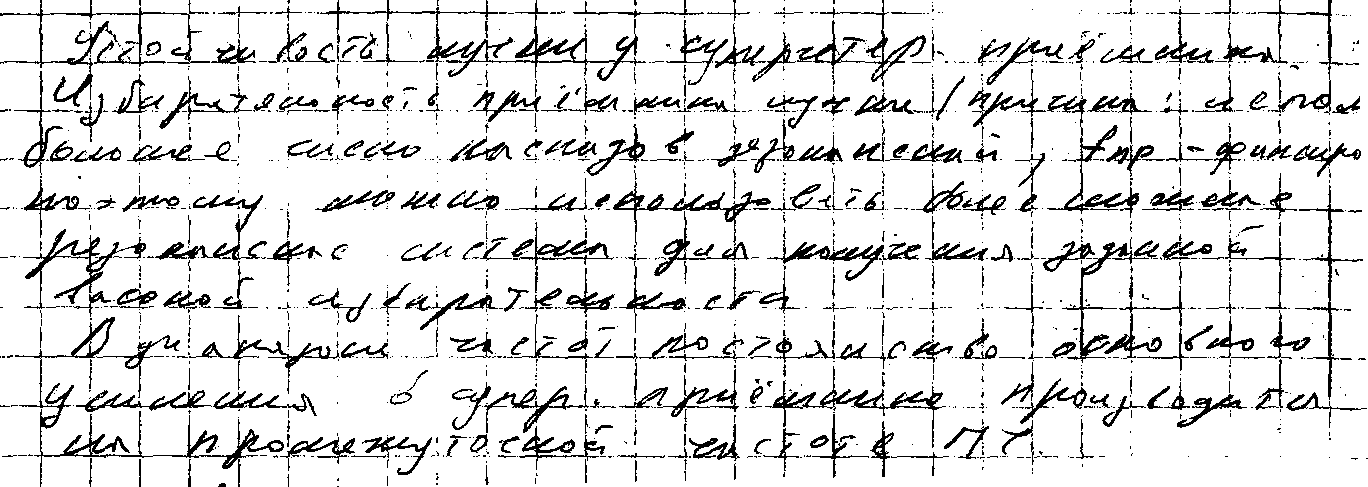 Устойчивость лучше у супергетер. приёмника
Избирательность приёмника лучше (причина:
большее число каскадов резонансный, fпр - фиксиро
поэтому можно использовать более сложные
резонансные системы для получения заданной
высокой избирательности
В диапазоне частот постоянство основного
усиления в супер. приёмнике производится
на промежуточной частоте ПЧ.